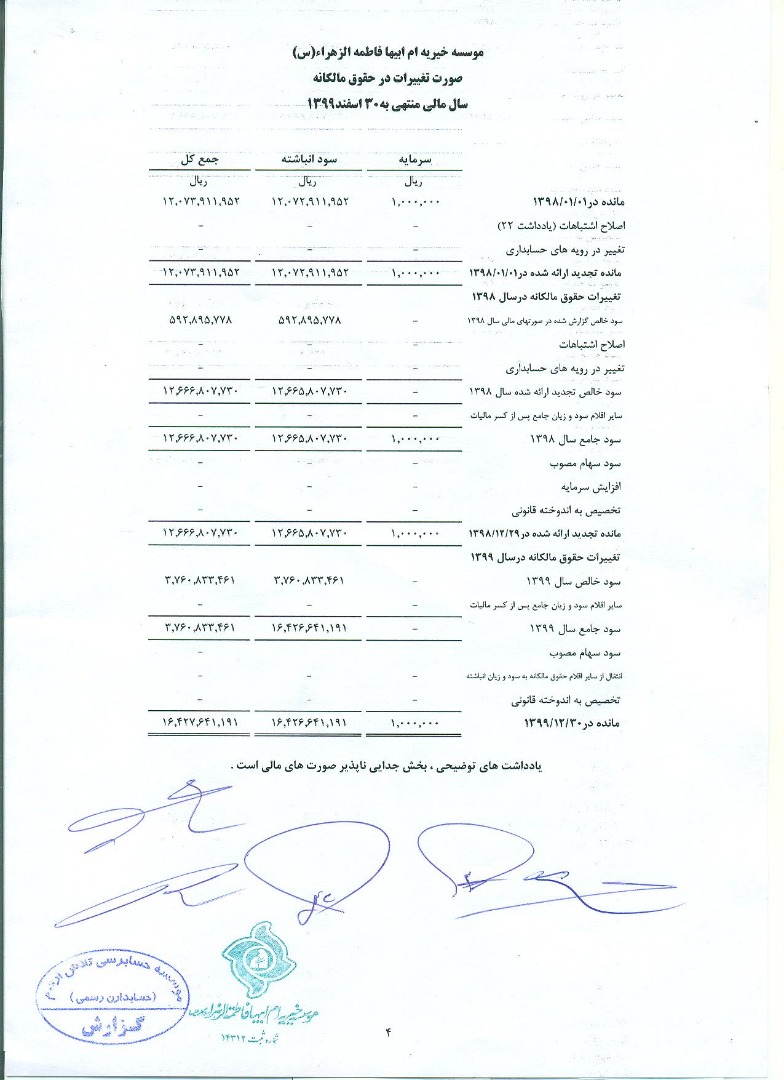 موسسه خیریه ام ابیها فاطمه الزهراء(س)
صورت تغییرات در حقوق مالکانه
سال مالی منتهی به ۳۰ اسفند۱۳۹۹
سرمایه سود انباشته جمع کل
ریال ریال ریال
مانده در۱۳۹۸/۰۱/۰۱ ۱,۰۰۰,۰۰۰ ۱۲,۰۷۲,۹۱۱,۹۵۲ ۱۲,۰۷۳,۹۱۱,۹۵۲
اصلاح اشتباهات (یادداشت ۲۲) – – –
تغییر در رویه های حسابداری – – –
مانده تجدید ارائه شده در۱۳۹۸/۰۱/۰۱ ۱,۰۰۰,۰۰۰ ۱۲,۰۷۲,۹۱۱,۹۵۲ ۱۲,۰۷۳,۹۱۱,۹۵۲
تغییرات حقوق مالکانه درسال ۱۳۹۸
سود خالص گزارش شده در صورتهای مالی سال ۱۳۹۸ – ۵۹۲,۸۹۵,۷۷۸ ۵۹۲,۸۹۵,۷۷۸
اصلاح اشتباهات – – –
تغییر در رویه های حسابداری – – –
سود خالص تجدید ارائه شده سال ۱۳۹۸ – ۱۲,۶۶۵,۸۰۷,۷۳۰ ۱۲,۶۶۶,۸۰۷,۷۳۰
سایر اقلام سود و زیان جامع پس از کسر مالیات – – –
سود جامع سال ۱۳۹۸ ۱,۰۰۰,۰۰۰ ۱۲,۶۶۵,۸۰۷,۷۳۰ ۱۲,۶۶۶,۸۰۷,۷۳۰
سود سهام مصوب – – –
افزایش سرمایه – – –
تخصیص به اندوخته قانونی – – –
مانده تجدید ارائه شده در۱۳۹۸/۱۲/۲۹ ۱,۰۰۰,۰۰۰ ۱۲,۶۶۵,۸۰۷,۷۳۰ ۱۲,۶۶۶,۸۰۷,۷۳۰
تغییرات حقوق مالکانه درسال ۱۳۹۹
سود خالص سال ۱۳۹۹ – ۳,۷۶۰,۸۳۳,۴۶۱ ۳,۷۶۰,۸۳۳,۴۶۱
سایر اقلام سود و زیان جامع پس از کسر مالیات – – –
سود جامع سال ۱۳۹۹ – ۱۶,۴۲۶,۶۴۱,۱۹۱ ۳,۷۶۰,۸۳۳,۴۶۱
سود سهام مصوب – – –
انتقال از سایر اقلام حقوق مالکانه به سود و زیان انباشته – – –
تخصیص به اندوخته قانونی – – –
مانده در۱۳۹۹/۱۲/۳۰ ۱,۰۰۰,۰۰۰ ۱۶,۴۲۶,۶۴۱,۱۹۱ ۱۶,۴۲۷,۶۴۱,۱۹۱
یادداشت های توضیحی ، بخش جدایی ناپذیر صورت های مالی است .
موسسه خیریه ام ابیها فاطمة الزهرا
شماره ثبت ۱۴۳۱۲
موسسه حسابرسی تلاش ارقم
(حسابداران رسمی)
گزارش
۴